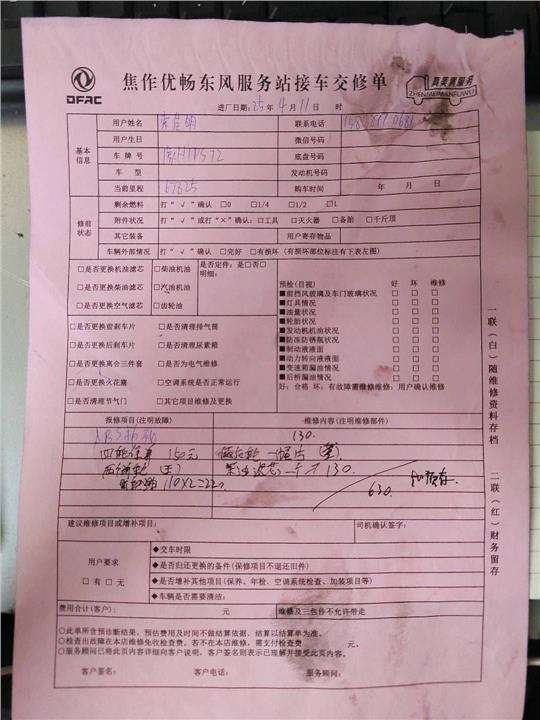 DFAC
焦作优畅东风服务站接车交修单
真美真服务
ZHENMEIWANFUWU
进厂日期:25年4月11日 时
基本信息
用户姓名 联系电话
用户生日 微信号码
车牌号 底盘号码
车型 发动机号码
当前里程 67625 购车时间 年 月 日
修前状态
剩余燃料 打“√”确认 □0 □1/4 □1/2 □1
附件状况 打“√”或打“×”确认:□工具 □灭火器 □备胎 □千斤顶
其它装备 用户寄存物品
车辆外部情况 打“√”确认 □完好 □有损坏(有损坏部位标注有下表左图)
□是否更换机油滤芯 □柴油机油 是否定件:是□否□
明细:
□是否更换柴油滤芯 □汽油机油
□是否更换空气滤芯 □齿轮油
□是否更换前刹车片 □是否清理排气筒
□是否更换后刹车片 □是否清理尿素箱
□是否更换离合三件套 □是否为电气维修
□是否更换火花塞 □空调系统是否正常运行
□是否清理节气门 □其它项目维修及更换
预检(目视) 好 坏 维修
■前挡风玻璃及车门玻璃状况 □ □ □
■灯具情况 □ □ □
■油量状况 □ □ □
■轮胎状况 □ □ □
■发动机机油状况 □ □ □
■防冻防锈瓶状况 □ □ □
■制动液液面 □ □ □
■动力转向液液面 □ □ □
■变速箱漏油情况 □ □ □
■后桥漏油情况 □ □ □
好:合格 坏:有故障需维修维修:用户确认维修
报修项目(注明故障) 维修内容(注明维修部件)
130.
四轮保养 150元
130.
110X2=220
630.
建议维修项目或增补项目: 司机确认签字:
用户要求
□有 □无
◆交车时限
◆是否归还更换的备件(保修项目不退还旧件)
◆是否增补其他项目(保养、年检、空调系统检查、加装项目等)
◆车辆是否需要清洁:
费用合计(客户): 元 维修及三包件不允许带走
○此单所含预诊断结果,预估费用及时间不做结算依据,结算以结算单为准。
○检查出故障在本店维修免收检查费,若不在本店维修,需支付检查费 元。
○服务顾问已将此页内容详细向客户说明,客户签名则表示已理解并接受此页内容。
客户签名: 客户电话: 服务顾问:
一联(白)随维修资料存档
二联(红)财务留存